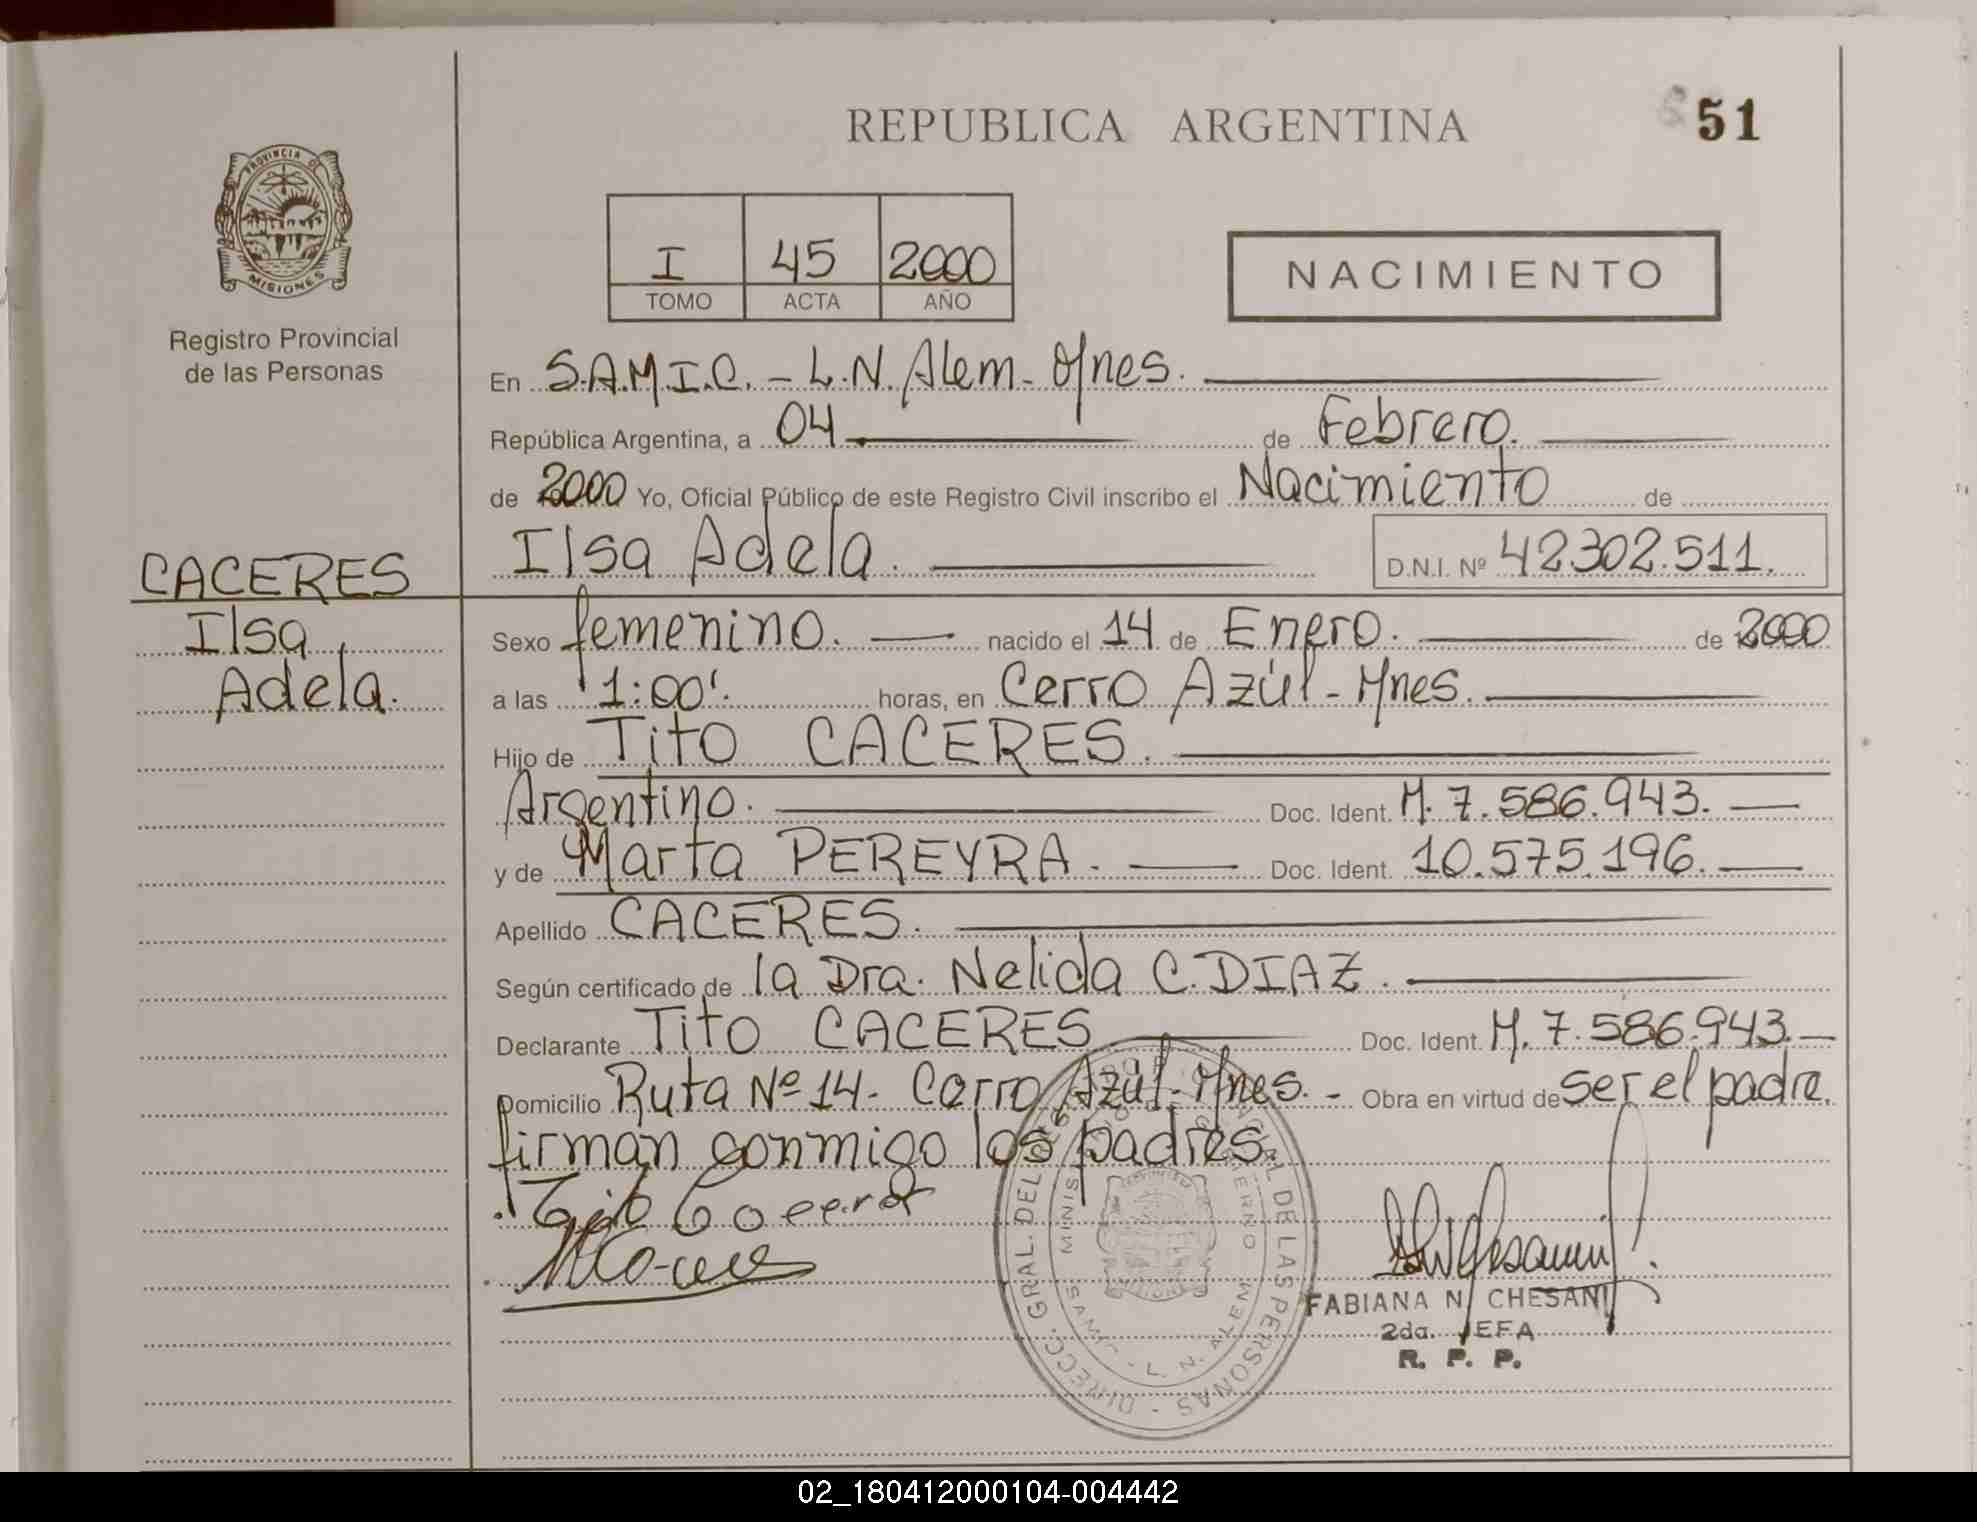 REPUBLICA ARGENTINA
51
PROVINCIA DE
MISIONES
Registro Provincial
de las Personas
I 45 2000
TOMO ACTA AÑO
NACIMIENTO
En S.A.M.I.C. - L.N. Alem - Mnes.
República Argentina, a 04 de Febrero.
de 2000 Yo, Oficial Público de este Registro Civil inscribo el Nacimiento de
Ilsa Adela. D.N.I. Nº 42302.511.
CACERES
Ilsa
Adela.
Sexo femenino. nacido el 14 de Enero. de 2000
a las 1:00'. horas, en Cerro Azúl - Mnes.
Hijo de Tito CACERES.
Argentino. Doc. Ident. M. 7.586.943.
y de Marta PEREYRA. Doc. Ident. 10.575.196.
Apellido CACERES.
Según certificado de la Dra. Nelida C. DIAZ.
Declarante Tito CACERES Doc. Ident. M. 7.586.943.
Domicilio Ruta Nº 14 - Cerro Azúl - Mnes. - Obra en virtud de ser el padre.
firman conmigo los padres.
DIRECC. GRAL. DEL REGISTRO PROVINCIAL DE LAS PERSONAS
SAMIC - L. N. ALEM
FABIANA N. CHESANI
2da. JEFA
R. P. P.
02_180412000104-004442